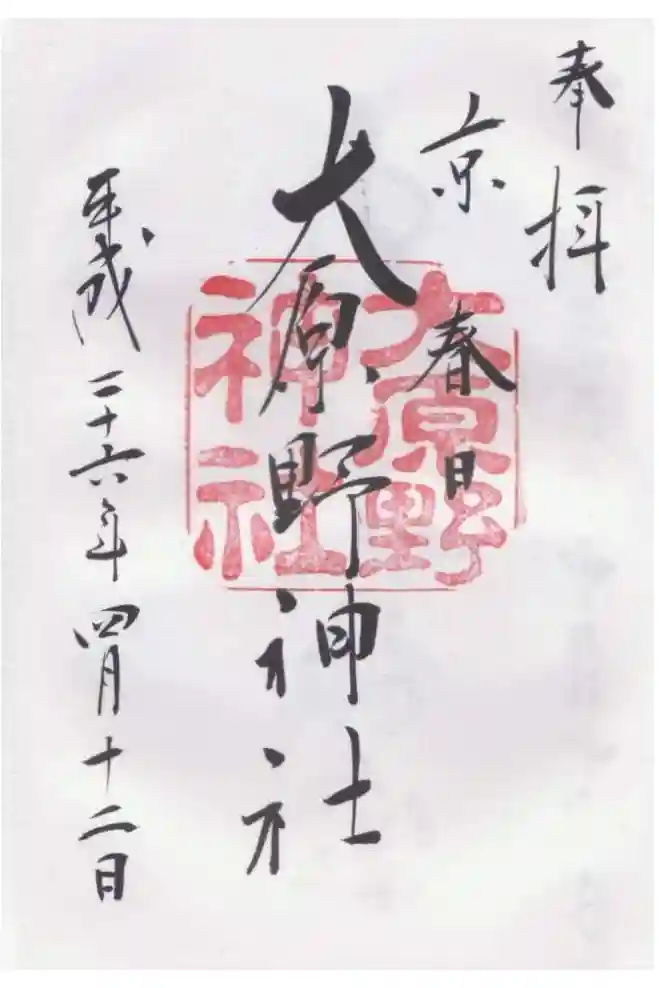 奉拝
京春日
大原野神社
大原野
神社
平成二十六年四月十二日